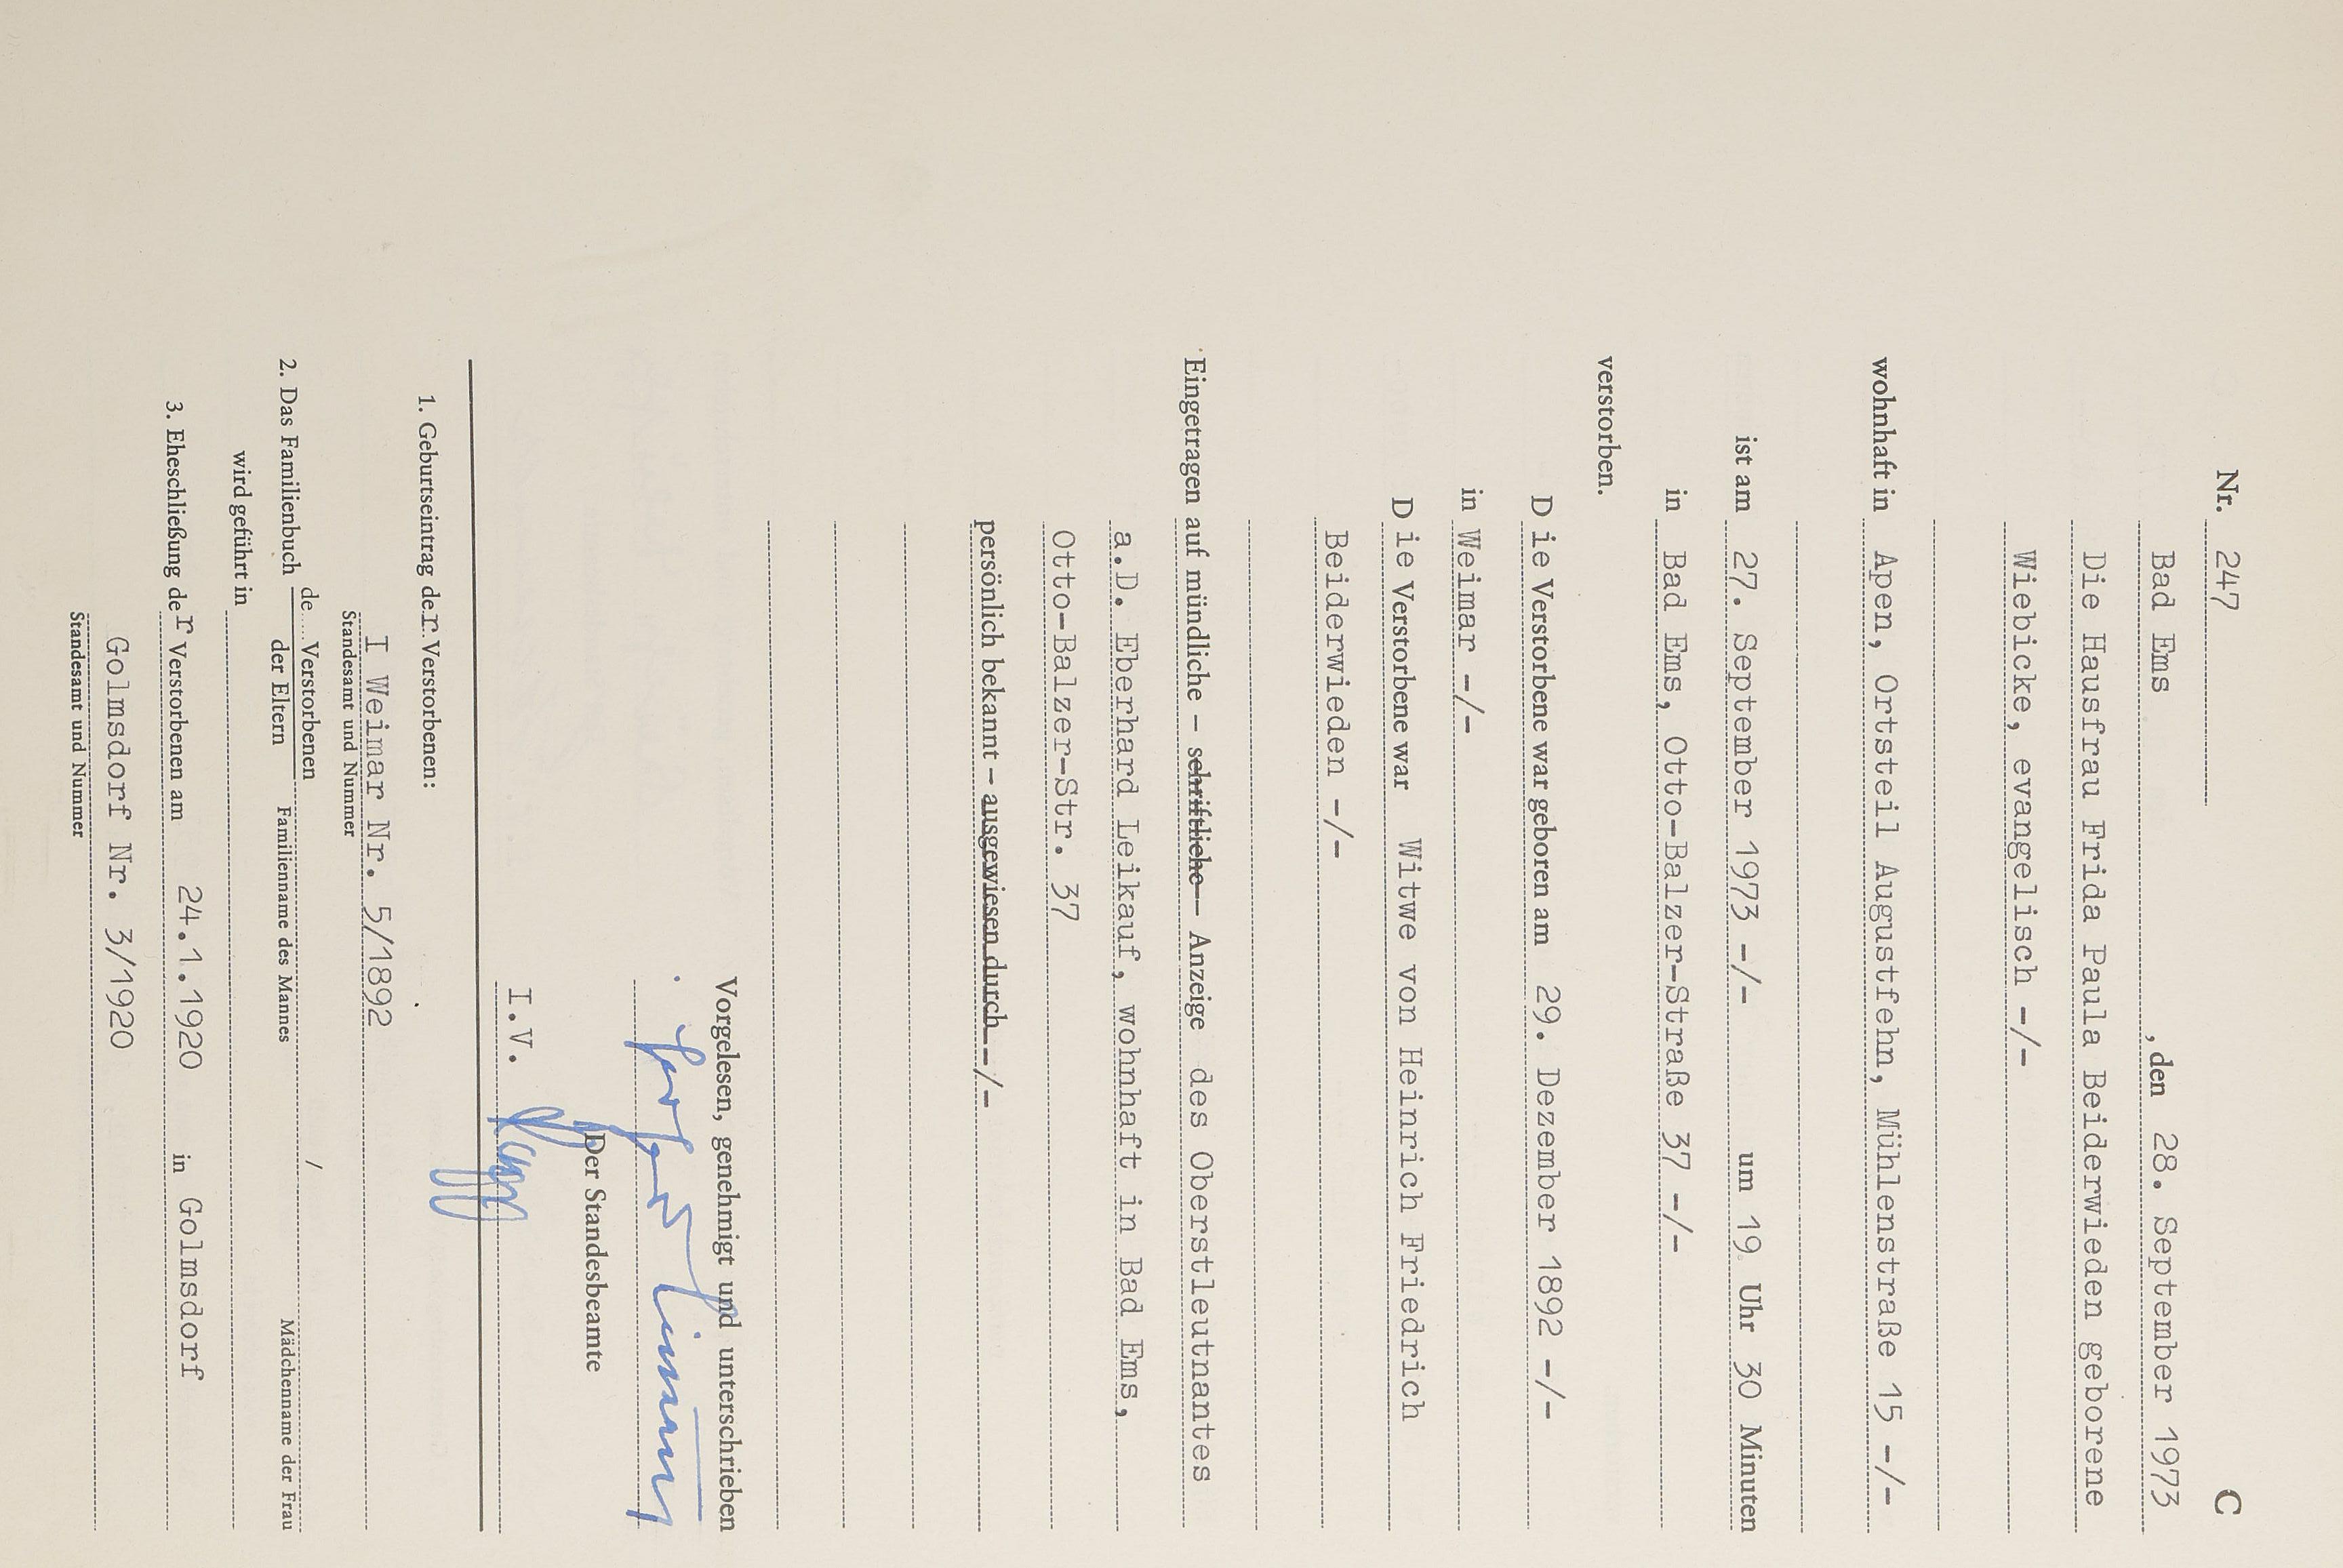 Nr. 247 C
Bad Ems , den 28. September 1973
Die Hausfrau Frida Paula Beiderwieden geborene
Wiebicke, evangelisch -/-
wohnhaft in Apen, Ortsteil Augustfehn, Mühlenstraße 15 -/-
ist am 27. September 1973 -/- um 19 Uhr 30 Minuten
in Bad Ems, Otto-Balzer-Straße 37 -/-
verstorben.
D ie Verstorbene war geboren am 29. Dezember 1892 -/-
in Weimar -/-
D ie Verstorbene war Witwe von Heinrich Friedrich
Beiderwieden -/-
Eingetragen auf mündliche - schriftliche - Anzeige des Oberstleutnantes
a.D. Eberhard Leikauf, wohnhaft in Bad Ems,
Otto-Balzer-Str. 37
persönlich bekannt - ausgewiesen durch - -/-
Vorgelesen, genehmigt und unterschrieben
Der Standesbeamte
I.V.
1. Geburtseintrag der Verstorbenen:
I Weimar Nr. 5/1892
Standesamt und Nummer
2. Das Familienbuch de..... Verstorbenen /
der Eltern Familienname des Mannes Mädchenname der Frau
wird geführt in
3. Eheschließung der Verstorbenen am 24.1.1920 in Golmsdorf
Golmsdorf Nr. 3/1920
Standesamt und Nummer